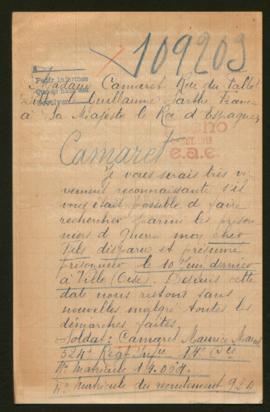 109203
Madame Camaret Rue du
Guillaume Sarthe France
à Sa Majesté le Roi d'Espagne
Camaret
e.a.e.
Je vous serais très vi-
vement reconnaissante s'il
vous était possible de faire
rechercher parmi les prison
niers de Guerre mon cher
fils disparu et présumé
prisonnier le 10 Juin dernier
à Ville (Oise). Depuis cette
date nous restons sans
nouvelles malgré toutes les
démarches faites.
Soldat: Camaret Maurice
324e Régt Infie 14e Cie
No matricule
No matricule du recrutement